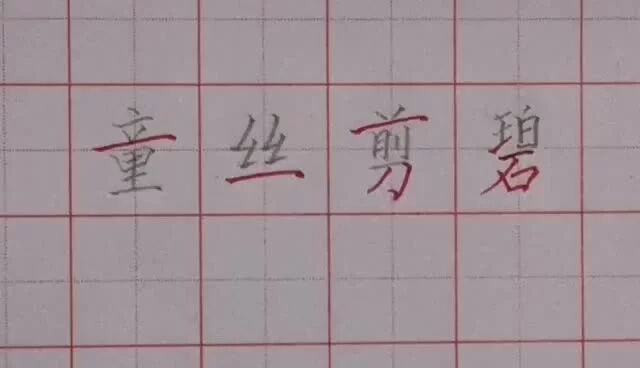 童丝剪碧